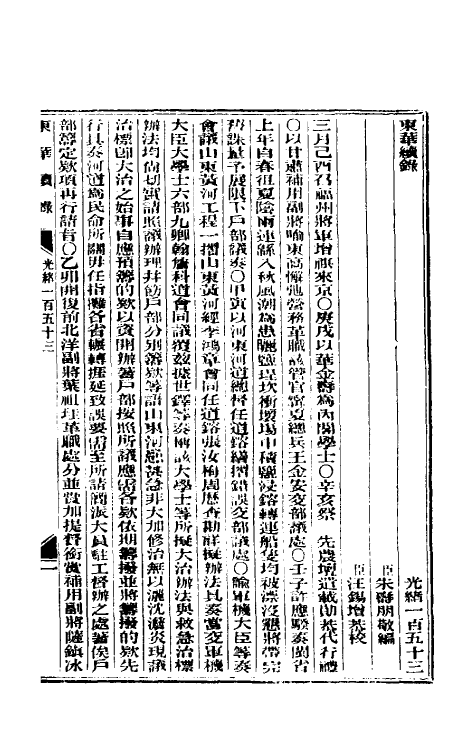 東華續錄
光緒一百五十三
臣朱壽朋敬編
臣汪錫增恭校
三月己酉召福州將軍增祺來京○庚戌以華金壽為內閣學士○辛亥祭　先農壇遣載勛恭代行禮
○以甘肅補用副將喻東高懈弛營務革職該管官寧夏總兵王金安交部議處○壬子許應騤奏閩省
上年自春徂夏陰雨連緜入秋風潮為患鹽埕坎衝壞場中積鹽浸鎔轉運船隻均被漂沒懇將帶完
課量予展限下戶部議奏○甲寅以河東河道總督任道鎔繕摺錯誤交部議處○諭軍機大臣等奏
會議山東黃河工程一摺山東黃河經李鴻章會同任道鎔張汝梅周歷查勘詳擬辦法具奏當交軍機
大臣大學士六部九卿翰詹科道會同議覆茲據世鐸等奏稱該大學士等所擬大治辦法與救急治標
辦法均尚切實請照議辦理并飭戶部分別籌款等語山東河患甚急非大加修治無以灑沈澹災現議
治標卽大治之始事自應預籌的款以資開辦著戶部按照所議應需各款依期籌撥並將籌撥的款先
行具奏河道為民命所關毋任指攤各省輾轉推延致誤要需至所請簡派大員駐工督辦之處著俟戶
部籌定款項再行請旨○乙卯開復前北洋副將葉祖珪革職處分並賞加提督銜賞補用副將薩鎮冰
東華續錄
光緒一百五十三
一